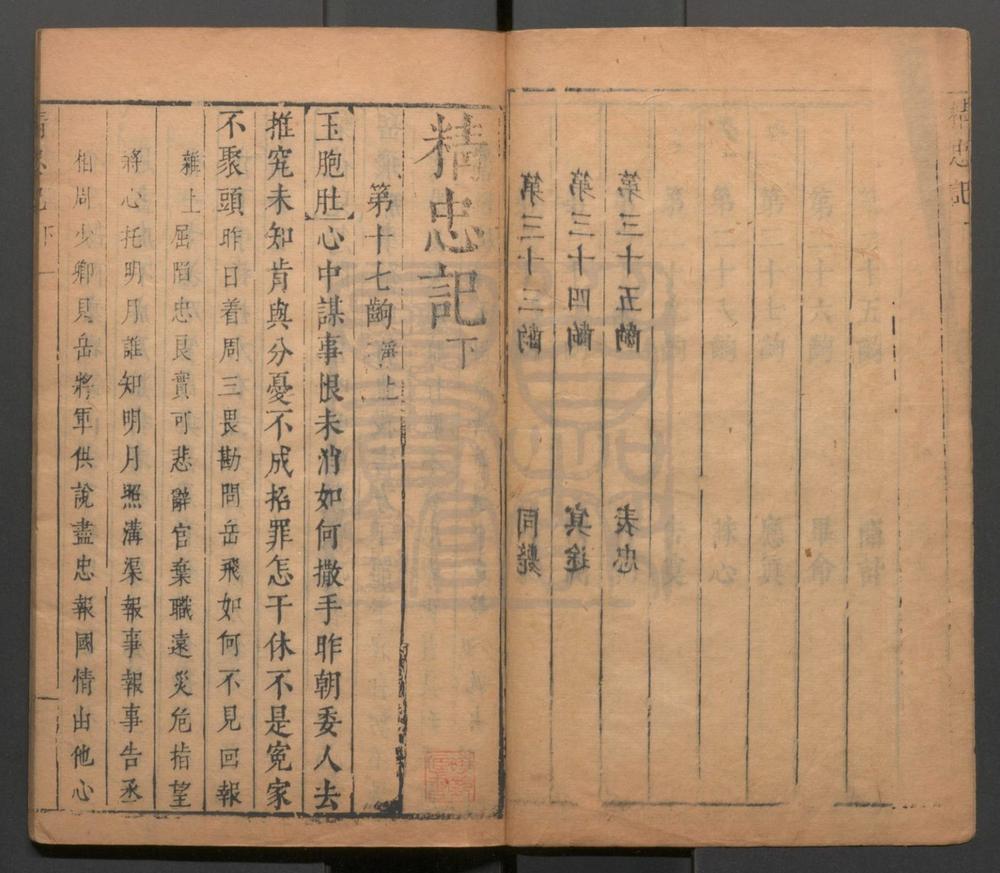 精忠記
第三十三齣 同斃
第三十四齣 冥途
第三十五齣 表忠
精忠記下
第十七齣 淨上
【玉胞肚】心中謀事恨未消如何撒手昨朝委人去
推究未知肯與分憂不成招罪怎干休不是寃家
不聚頭昨日着周三畏勘問岳飛如何不見回報
雜上屈陷忠良實可悲辭官棄職遠災危指望
將心托明月誰知明月照溝渠報事報事告丞
相周少卿見岳將軍供說盡忠報國情由他心
精忠記下 一